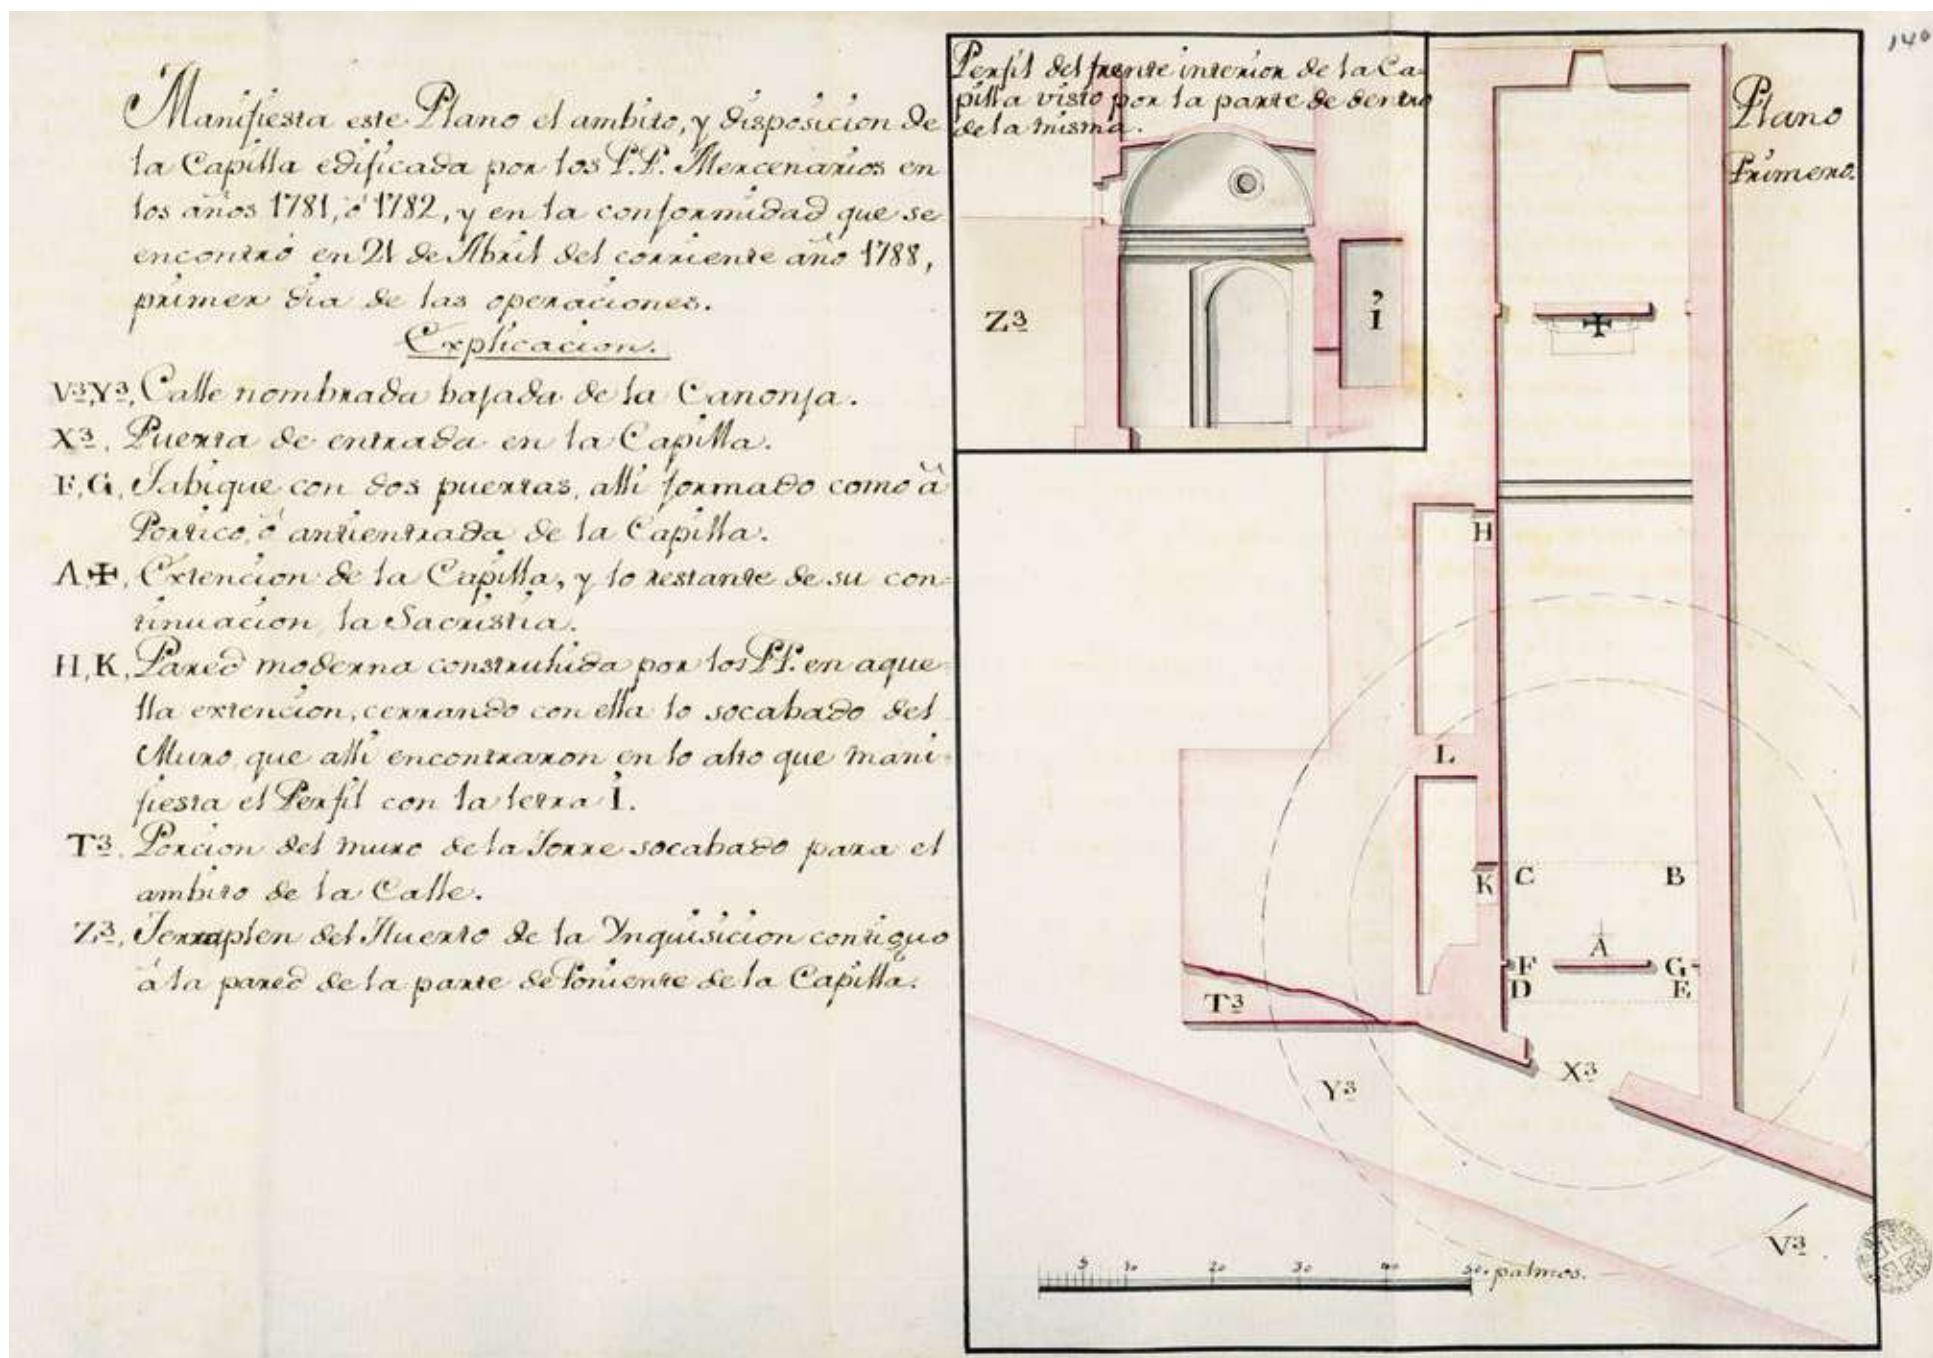 Manifiesta este Plano el ambito, y disposicion de
la Capilla edificada por los P.P. Mercenarios en
los años 1781, ó 1782, y en la conformidad que se
encontró en 21 de Abril del corriente año 1788,
primer dia de las operaciones.
Explicacion.
V3,Y3, Calle nombrada bajada de la Canonja.
X3, Puerta de entrada en la Capilla.
F, G, Tabique con dos puertas, alli formado como à
Portico, ó antientrada de la Capilla.
A,✠, Extencion de la Capilla, y lo restante de su con=
tinuacion, la Sacristia.
H, K, Pared moderna construhida por los PP. en aque=
lla extencion, cerrando con ella lo socabado del
Muro, que alli encontraron en lo alto que mani=
fiesta el Perfil con la letra I.
T3, Porcion del muro de la Torre socabado para el
ambito de la Calle.
Z3, Terraplen del Huerto de la Ynquisicion contiguo
á la pared de la parte de Poniente de la Capilla.
Perfil del frente interior de la Ca=
pilla visto por la parte de dentro
de la misma.
Z3
I
Plano
Primero.
140
✠
H
L
K
C
B
A
F
G
D
E
T3
X3
Y3
V3
5 10 20 30 40 50. palmos.